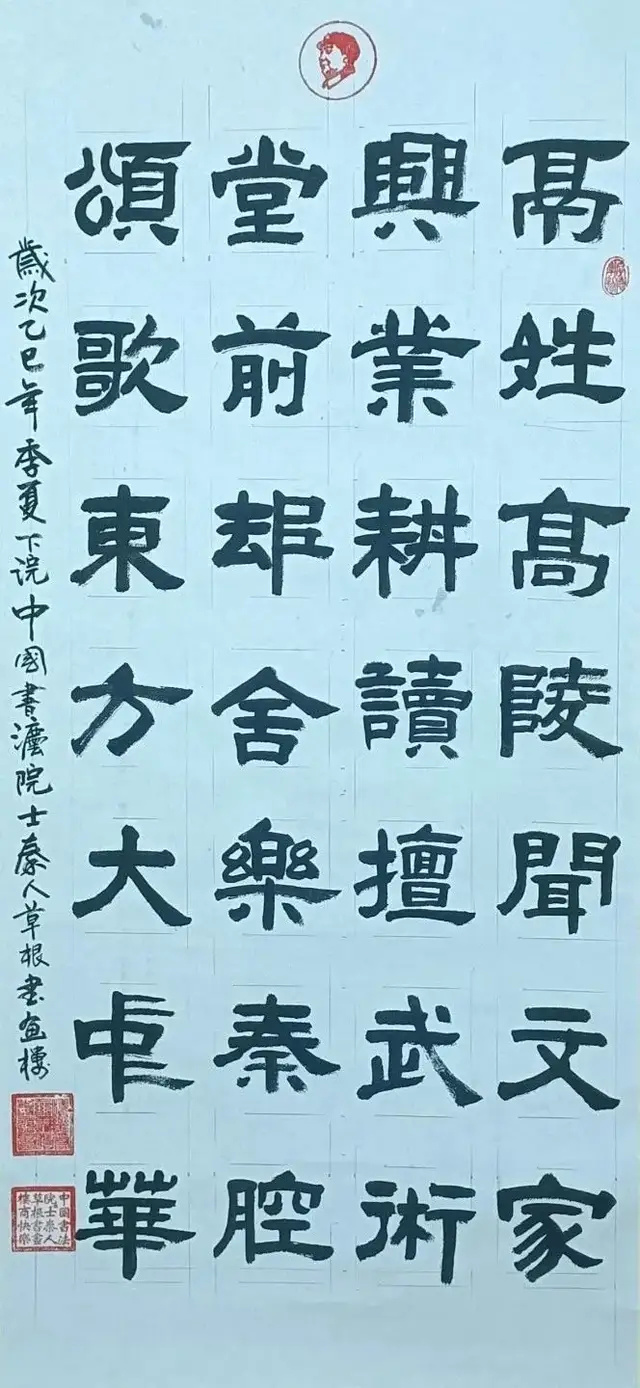 鬲姓髙陵聞文家
興業耕讀擅武術
堂前邨舍樂秦腔
頌歌東方大中華
歲次乙巳年季夏下浣中國書灋院士秦人草根書畫樓
中國書法
院士秦人
草根書畫